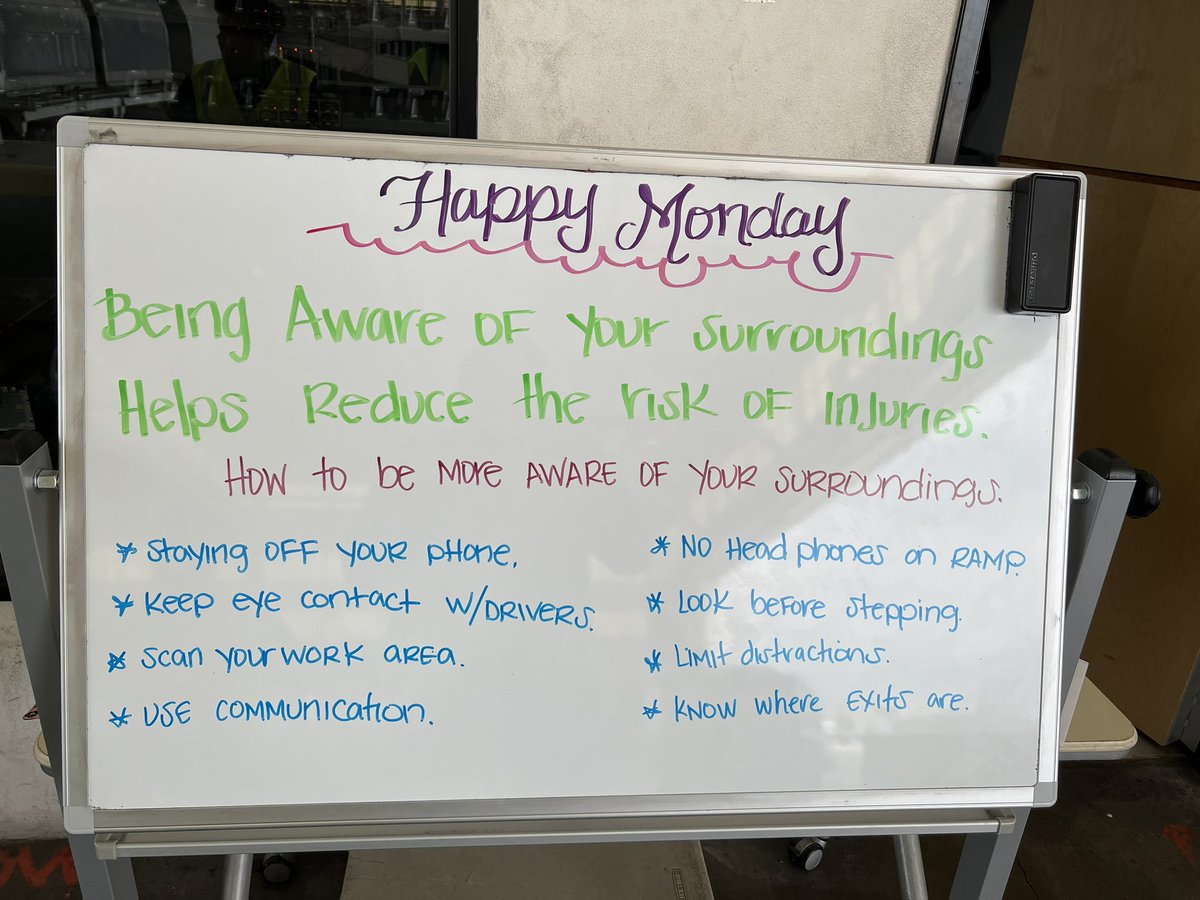 Happy Monday
Being Aware OF Your surroundings
Helps Reduce the risk OF Injuries.
HOW to be MORE AWARE OF YOUR SURROUNDINGS.
* Staying OFF YOUR PHONE.
* Keep eye contact W/DRIVERS.
* Scan your WORK AREA.
* USE COMMUNICATION.
* NO Headphones on RAMP.
* LOOK before stepping.
* LIMIT distractions.
* KNOW where EXITS are.